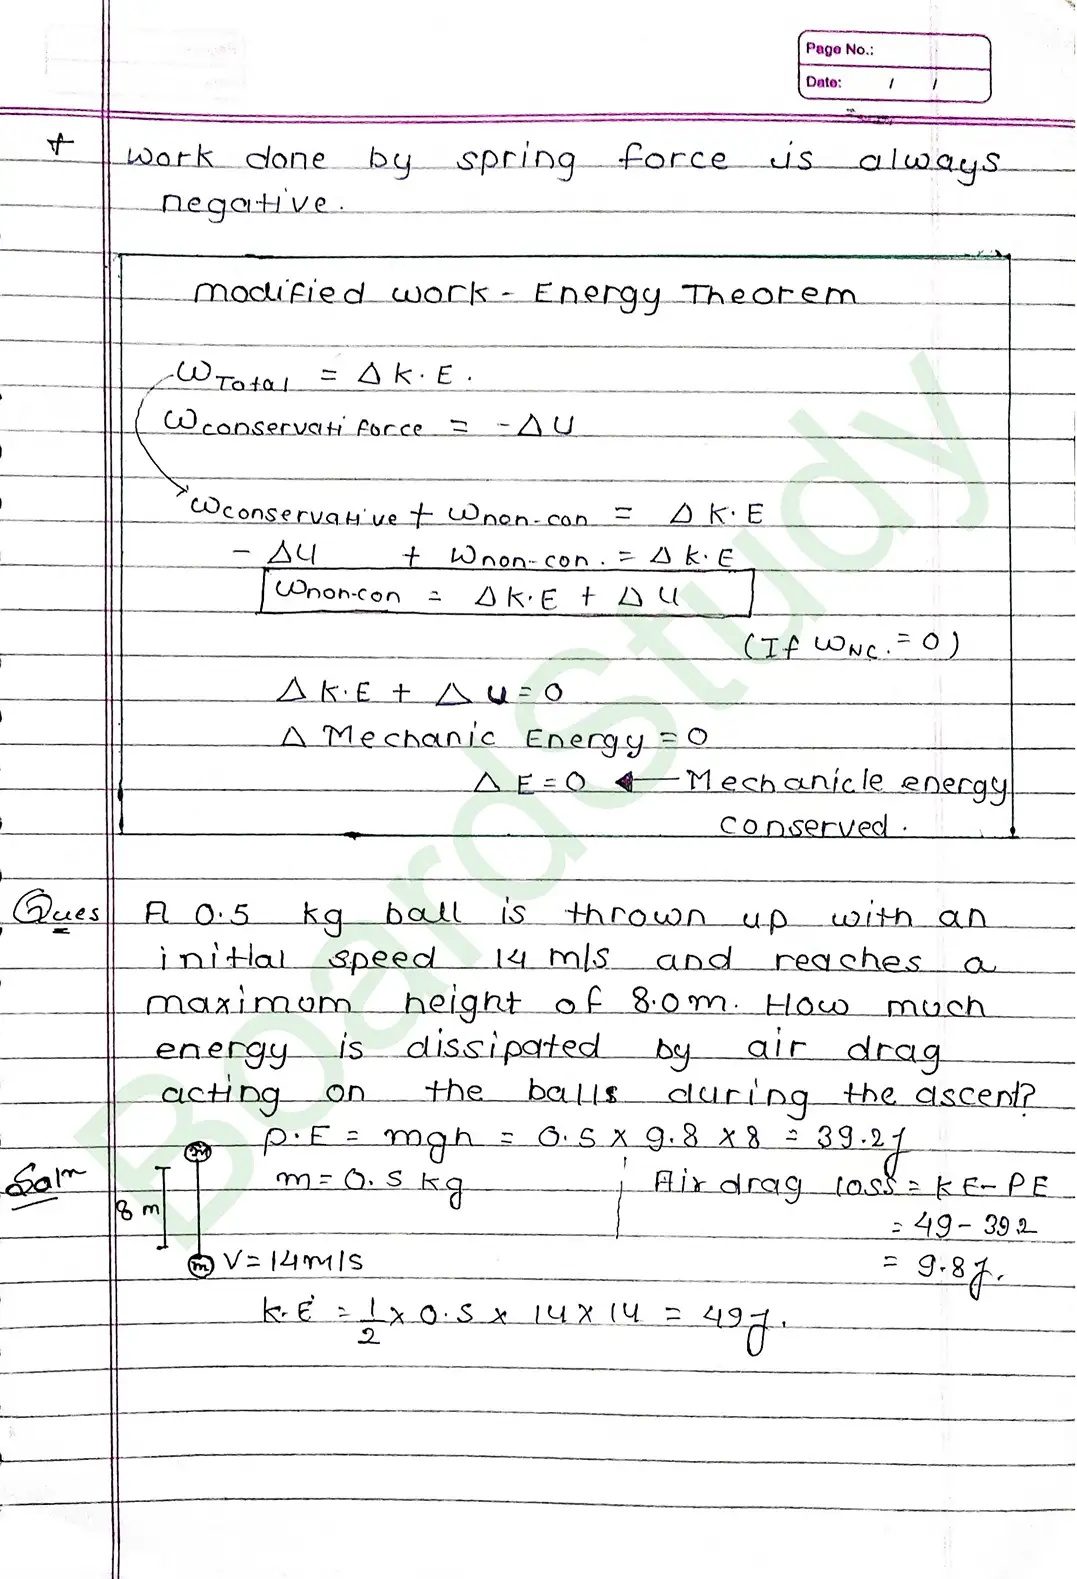 Page No.:
Date: / /
+ Work done by spring force is always
negative.
modified work - Energy Theorem
W Total = Δ K.E.
W conservati force = -ΔU
W conservative + W non-con = Δ K.E
- ΔU + W non-con. = Δ K.E
W non-con = Δ K.E + Δ U
(If W NC. = 0)
Δ K.E + Δ U = 0
Δ Mechanic Energy = 0
Δ E = 0 ← Mechanicle energy
conserved.
Ques A 0.5 kg ball is thrown up with an
initial speed 14 m/s and reaches a
maximum height of 8.0m. How much
energy is dissipated by air drag
acting on the balls during the ascent?
P.E = mgh = 0.5 x 9.8 x 8 = 39.2J
Soln m
m = 0.5 kg
Air drag loss = KE - PE
8 m
= 49 - 39.2
m V = 14 m/s
= 9.8J.
K.E = 1/2 x 0.5 x 14 x 14 = 49J.
BoardStudy